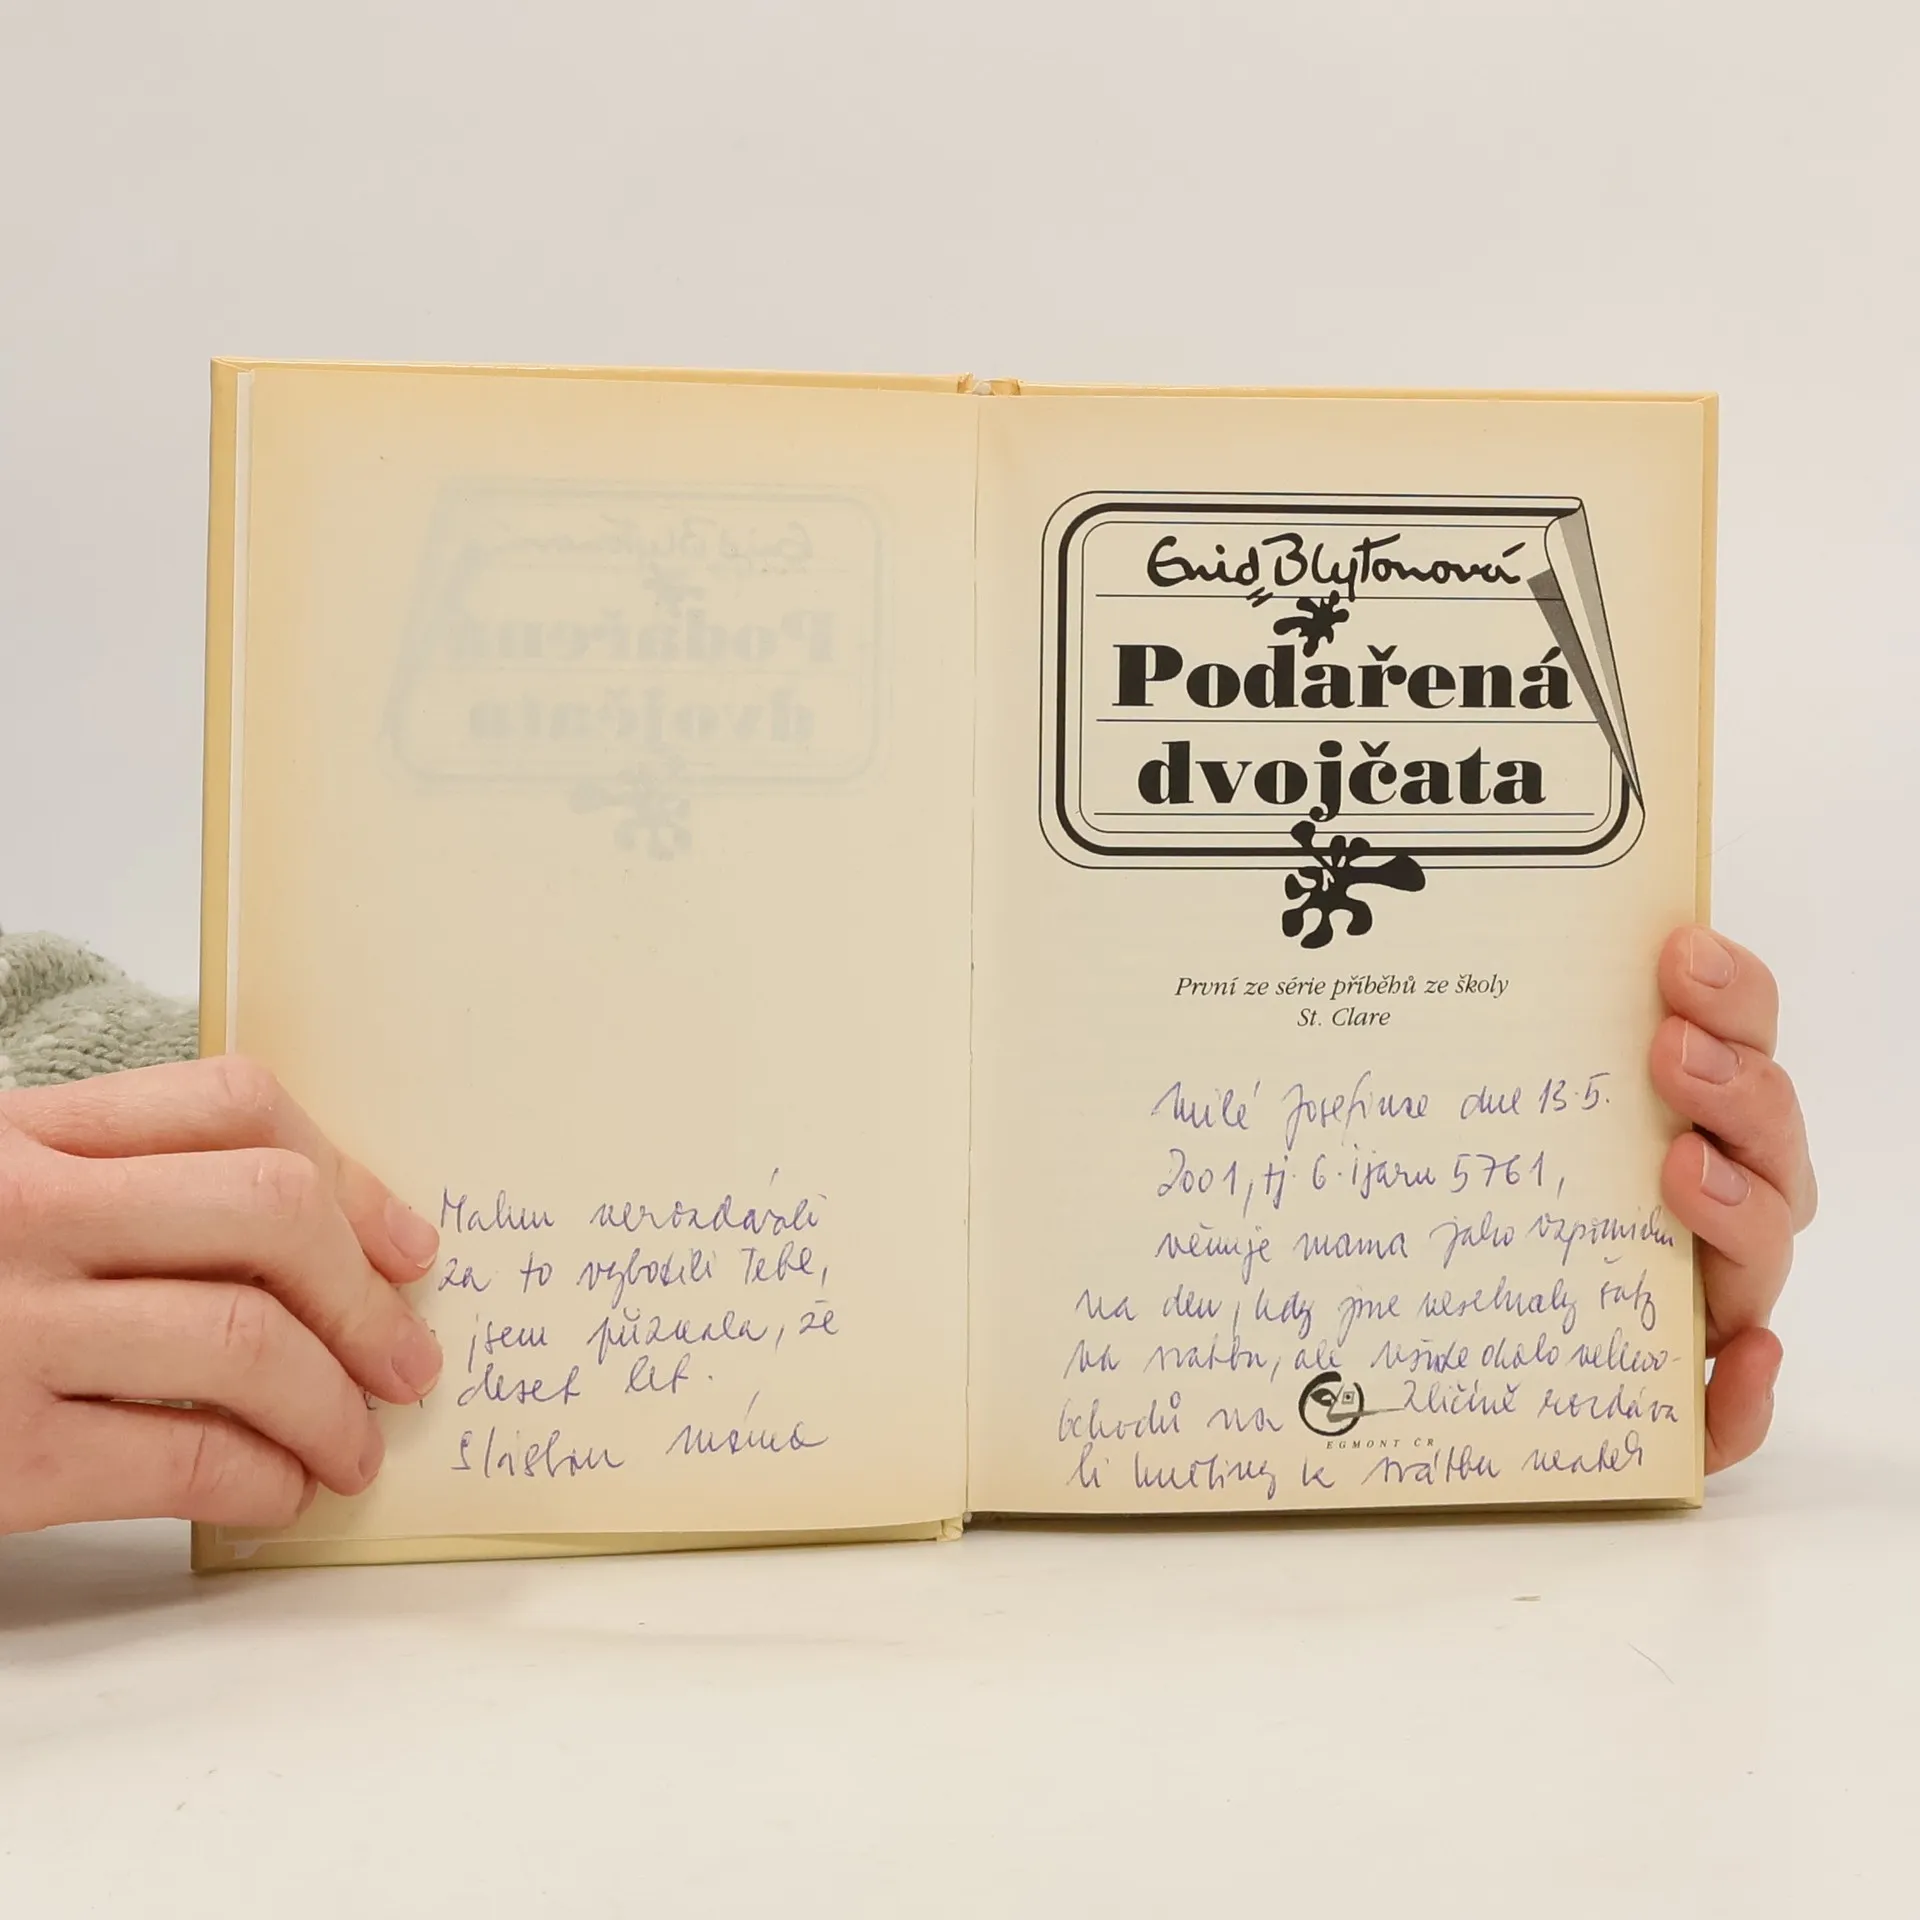 Enid Blytonová
Podařená
dvojčata
První ze série příběhů ze školy
St. Clare
Milé Josefince dne 13.5.
2001, tj. 6. ijaru 5761,
věnuje mama jako vzpomínku
na den, kdy jsme nesehnaly šaty
na svatbu, ale všude
obchodů na Zličíně rozdáva
li k svatbu
EGMONT ČR
nerozdávali
za to Tebe,
jsem přiznala, že
deset let.
máma